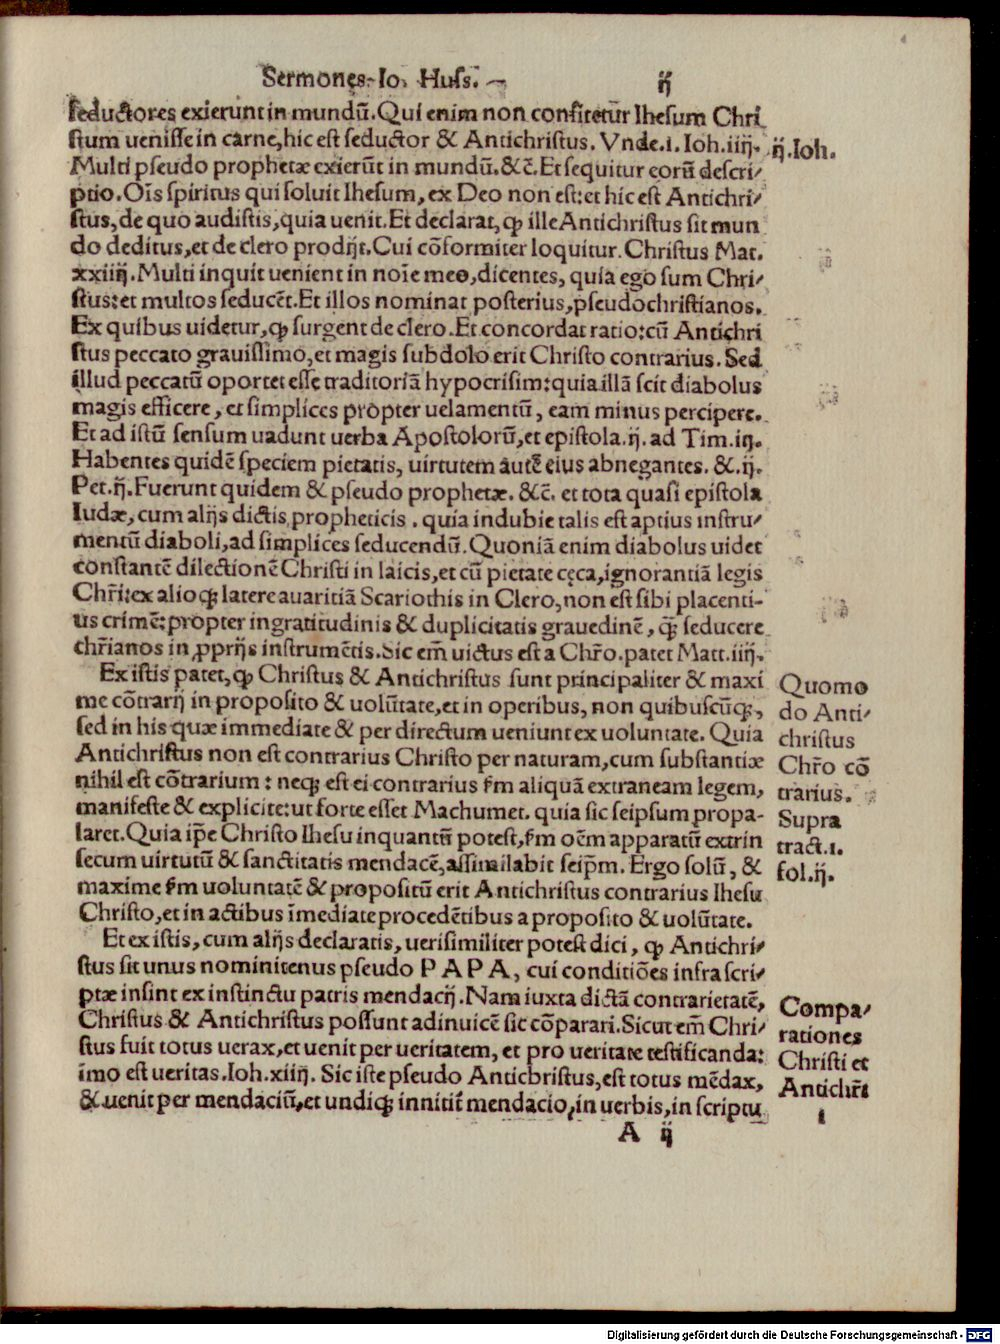 Sermones. Io. Huss. ij
seductores exierunt in mundū. Qui enim non confitetur Ihesum Chri
stum uenisse in carne, hic est seductor & Antichristus. Vnde. i. Ioh. iiij.
ij. Ioh.
Multi pseudo prophetæ exierūt in mundū. &c̄. Et sequitur eorū descri/
ptio. Oīs spiritus qui soluit Ihesum, ex Deo non est: et hic est Antichri/
stus, de quo audistis, quia uenit. Et declarat, ꝙ ille Antichristus sit mun
do deditus, et de clero prodijt. Cui cōformiter loquitur Christus Mat.
xxiiij. Multi inquit uenient in noīe meo, dicentes, quia ego sum Chri/
stus: et multos seducēt. Et illos nominat posterius, pseudochristianos.
Ex quibus uidetur, ꝙ surgent de clero. Et concordat ratio: cū Antichri
stus peccato grauissimo, et magis subdolo erit Christo contrarius. Sed
illud peccatū oportet esse traditoriā hypocrisim: quia illā scit diabolus
magis efficere, et simplices propter uelamentū, eam minus percipere.
Et ad istū sensum uadunt uerba Apostolorū, et epistola. ij. ad Tim. iij.
Habentes quidē speciem pietatis, uirtutem autē eius abnegantes. &. ij.
Pet. ij. Fuerunt quidem & pseudo prophetæ. &c̄. et tota quasi epistola
Iudæ, cum alijs dictis propheticis. quia indubie talis est aptius instru/
mentū diaboli, ad simplices seducendū. Quoniā enim diabolus uidet
constantē dilectionē Christi in laicis, et cū pietate cęca, ignorantiā legis
Chr̄i: ex alioqꝫ latere auaritiā Scariothis in Clero, non est sibi placenti-
us crimē: propter ingratitudinis & duplicitatis grauedinē, qᷓꝫ seducere
chr̄ianos in ꝓprijs instrumētis. Sic em̄ uictus est a Chr̄o. patet Matt. iiij.
Ex istis patet, ꝙ Christus & Antichristus sunt principaliter & maxi
me cōtrarij in proposito & uolūtate, et in operibus, non quibuscūqꝫ,
sed in his quæ immediate & per directum ueniunt ex uoluntate. Quia
Antichristus non est contrarius Christo per naturam, cum substantiæ
nihil est cōtrarium: neqꝫ est ei contrarius ẜm aliquā extraneam legem,
manifeste & explicite: ut forte esset Machumet. quia sic seipsum propa-
laret. Quia ip̄e Christo Ihesu inquantū potest, ẜm oēm apparatū extrin
secum uirtutū & sanctitatis mendacē, assimilabit seip̄m. Ergo solū, &
maxime ẜm uoluntatē & propositū erit Antichristus contrarius Ihesu
Christo, et in actibus īmediate procedētibus a proposito & uolūtate.
Quomo
do Anti/
christus
Chr̄o cō
trarius.
Supra
tract. 1.
fol. ij.
Et ex istis, cum alijs declaratis, uerisimiliter potest dici, ꝙ Antichri/
stus sit unus nominitenus pseudo PAPA, cui conditiōes infra scri/
ptæ insint ex instinctu patris mendacij. Nam iuxta dictā contrarietatē,
Christus & Antichristus possunt adinuicē sic cōparari. Sicut em̄ Chri/
stus fuit totus uerax, et uenit per ueritatem, et pro ueritate testificanda:
īmo est ueritas. Ioh. xiiij. Sic iste pseudo Antichristus, est totus mēdax,
& uenit per mendaciū, et undiqꝫ innitit᷑ mendacio, in uerbis, in scriptu
Compa/
rationes
Christi et
Antichr̄i
i
A ij
Digitalisierung gefördert durch die Deutsche Forschungsgemeinschaft - DFG